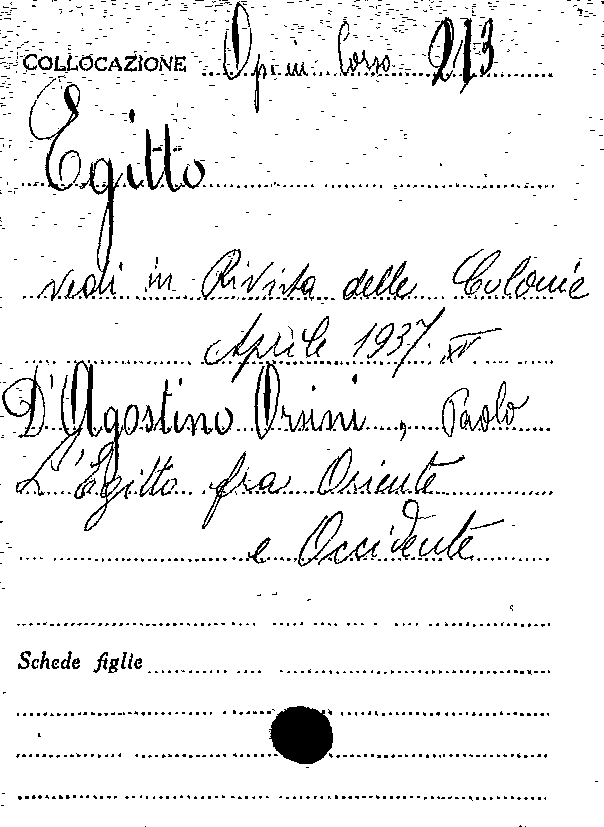 COLLOCAZIONE Op in Corso 213
Egitto
vedi in Rivista delle Colonie
Aprile 1937. XV
D'Agostino Orsini, Paolo
L'Egitto fra Oriente
e Occidente
Schede figlie